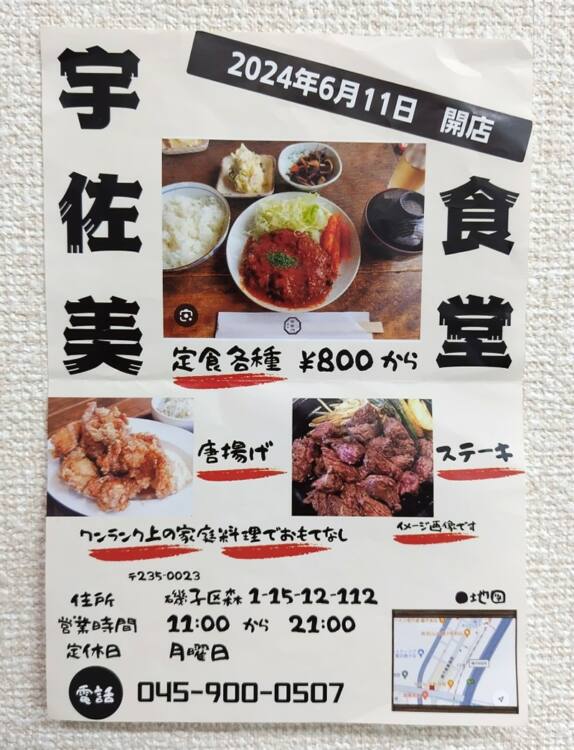 2024年6月11日 開店
宇佐美
食堂
定食各種 ¥800から
唐揚げ
ステーキ
ワンランク上の家庭料理でおもてなし
イメージ画像です
〒235-0023
住所 磯子区森1-15-12-112
営業時間 11:00 から 21:00
定休日 月曜日
●地図
電話 045-900-0507